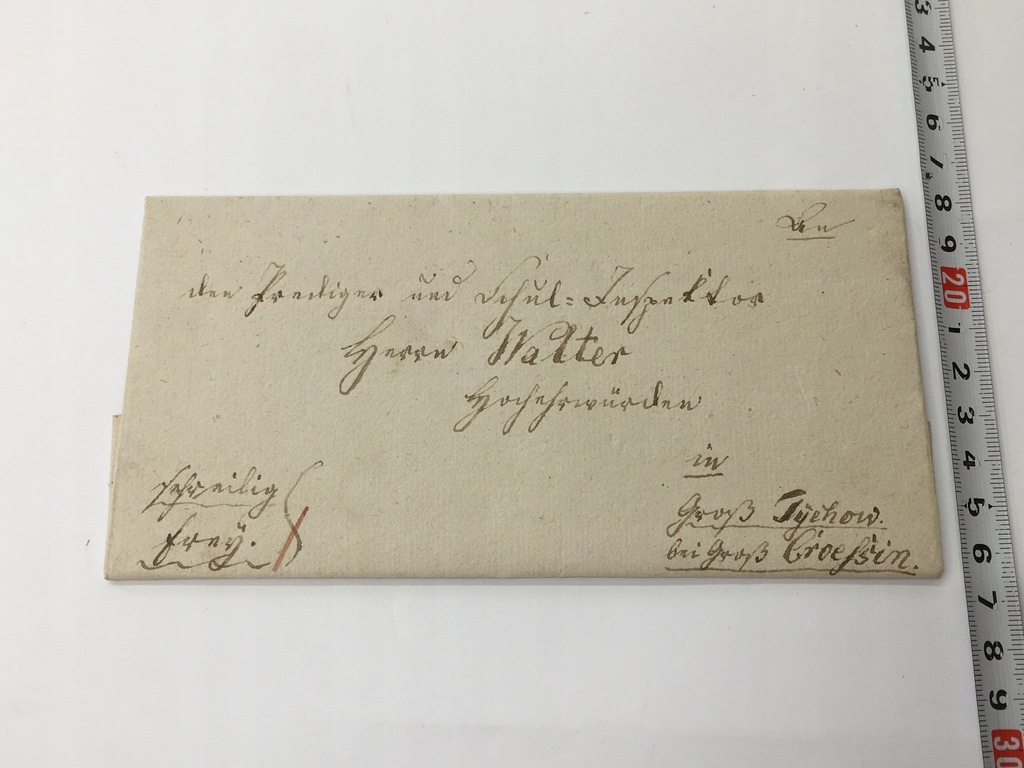 An
den Prediger und Schul=Inspektor
Herrn Walter
Hochehrwürden
in
Groß Tÿchow.
bei Groß Croessin.
sehr eilig
freÿ.
3
4
5
6
7
8
9
20
1
2
3
4
5
6
7
8
9
30